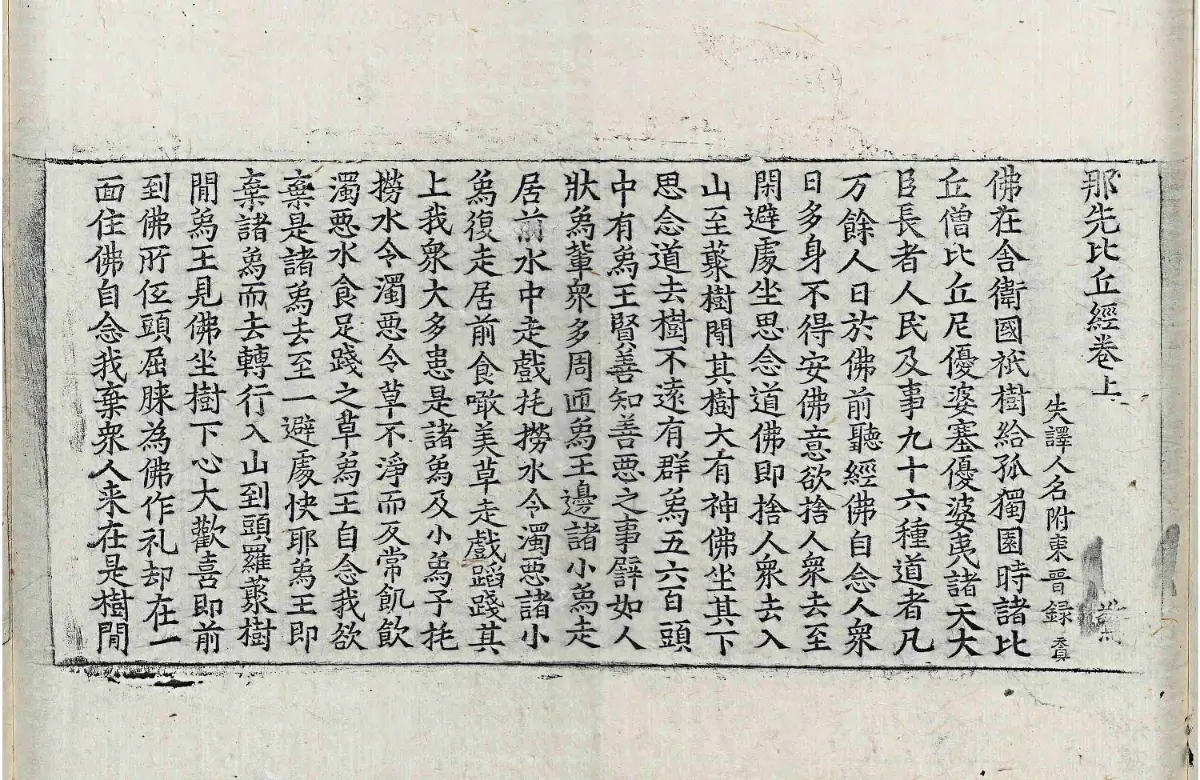 那先比丘經卷上
失譯人名附東晉録
佛在舍衛國祇樹給孤獨園時諸比
丘僧比丘尼優婆塞優婆夷諸天大
臣長者人民及事九十六種道者凡
万餘人日於佛前聽經佛自念人衆
日多身不得安佛意欲捨人衆去至
閑避處坐思念道佛即捨人衆去入
山至藂樹間其樹大有神佛坐其下
思念道去樹不遠有群象五六百頭
中有象王賢善知善惡之事譬如人
狀象輩衆多周匝象王邊諸小象走
居前水中走戲托撈水令濁惡諸小
象復走居前食噉美草走戲蹈踐其
上我衆大多患是諸象及小象子托
撈水令濁惡令草不淨而反常飢飲
濁惡水食足踐之草象王自念我欲
棄是諸象去至一避處快耶象王即
棄諸象而去轉行入山到頭羅藂樹
間象王見佛坐樹下心大歡喜即前
到佛所低頭屈膝為佛作礼却在一
面住佛自念我棄衆人来在是樹間